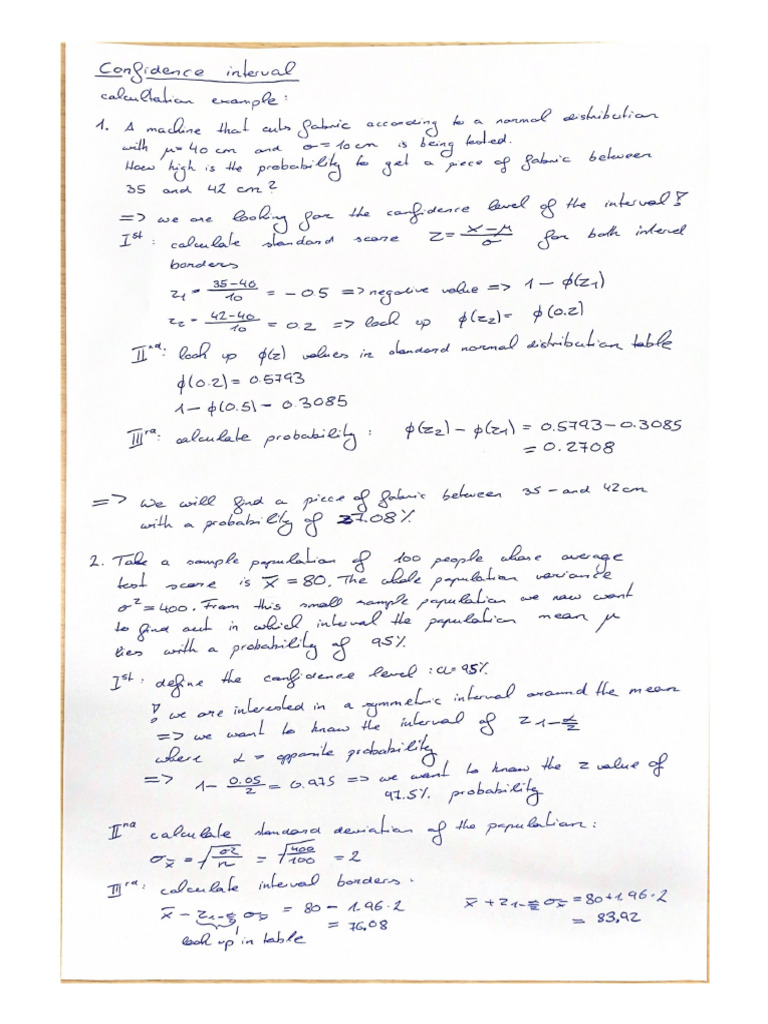 Confidence interval
calcultation example:
1. A machine that cuts fabric according to a normal distribution
with μ=40 cm and σ=10cm is being tested.
How high is the probability to get a piece of fabric between
35 and 42 cm?
=> we are looking for the confidence level of the interval!
Ist: calculate standard score z = (x-μ)/σ for both interval
borders
z1 = (35-40)/10 = -0.5 => negative value => 1 - φ(z1)
z2 = (42-40)/10 = 0.2 => look up φ(z2) = φ(0.2)
IInd: look up φ(z) values in standard normal distribution table
φ(0.2) = 0.5793
1-φ(0.5) - 0.3085
IIIrd: calculate probability: φ(z2) - φ(z1) = 0.5793-0.3085
= 0.2708
=> We will find a piece of fabric between 35 - and 42cm
with a probability of 27.08%.
2. Take a sample population of 100 people whose average
test score is x̄ = 80. The whole population variance
σ²=400. From this small sample population we now want
to find out in which interval the population mean μ
lies with a probability of 95%.
Ist: define the confidence level: α=95%
! we are interested in a symmetric interval around the mean
=> we want to know the interval of z1-α/2
where α = opposite probability
=> 1 - 0.05/2 = 0.975 => we want to know the z value of
97.5% probability
IInd calculate standard deviation of the population:
σx̄ = √(σ²/n) = √(400/100) = 2
IIIrd: calculate interval borders.
x̄ - z1-α/2 σx̄ = 80 - 1.96·2 x̄ + z1-α/2 σx̄ = 80+1.96·2
= 76.08 = 83.92
look up in table